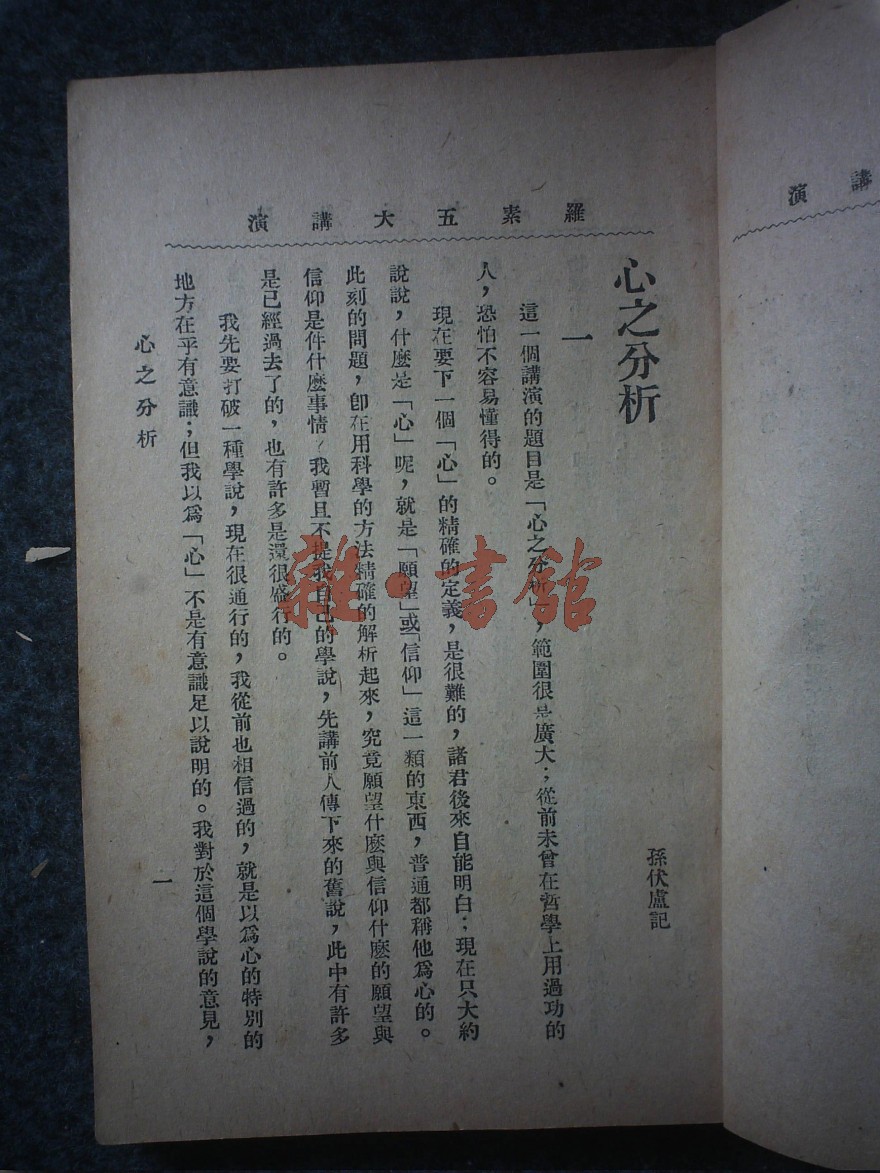 羅素五大講演
心之分析
孫伏盧記
一
這一個講演的題目是「心之分析」，範圍很是廣大；從前未曾在哲學上用過功的
人，恐怕不容易懂得的。
現在要下一個「心」的精確的定義，是很難的，諸君後來自能明白；現在只大約
說說，什麼是「心」呢，就是「願望」或「信仰」這一類的東西，普通都稱他爲心的。
此刻的問題，卽在用科學的方法精確的解析起來，究竟願望什麼與信仰什麼的願望與
信仰是件什麼事情？我暫且不提我自己的學說，先講前人傳下來的舊說，此中有許多
是已經過去了的，也有許多是還很盛行的。
我先要打破一種學說，現在很通行的，我從前也相信過的，就是以爲心的特別的
地方在乎有意識；但我以爲「心」不是有意識足以說明的。我對於這個學說的意見，
心之分析
一
講演
雜·書館